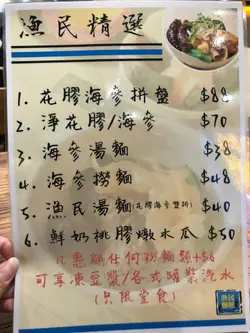 漁民精選
1. 花膠海參拼盤 $88
2. 淨花膠/海參 $70
3. 海參湯麵 $38
4. 海參撈麵 $48
5. 漁民湯麵(花膠海參雙拼) $40
6. 鮮奶桃膠燉木瓜 $50
凡惠顧任何粉麵類+$6
可享凍豆漿/各式罐裝汽水
(只限堂食)
漁民